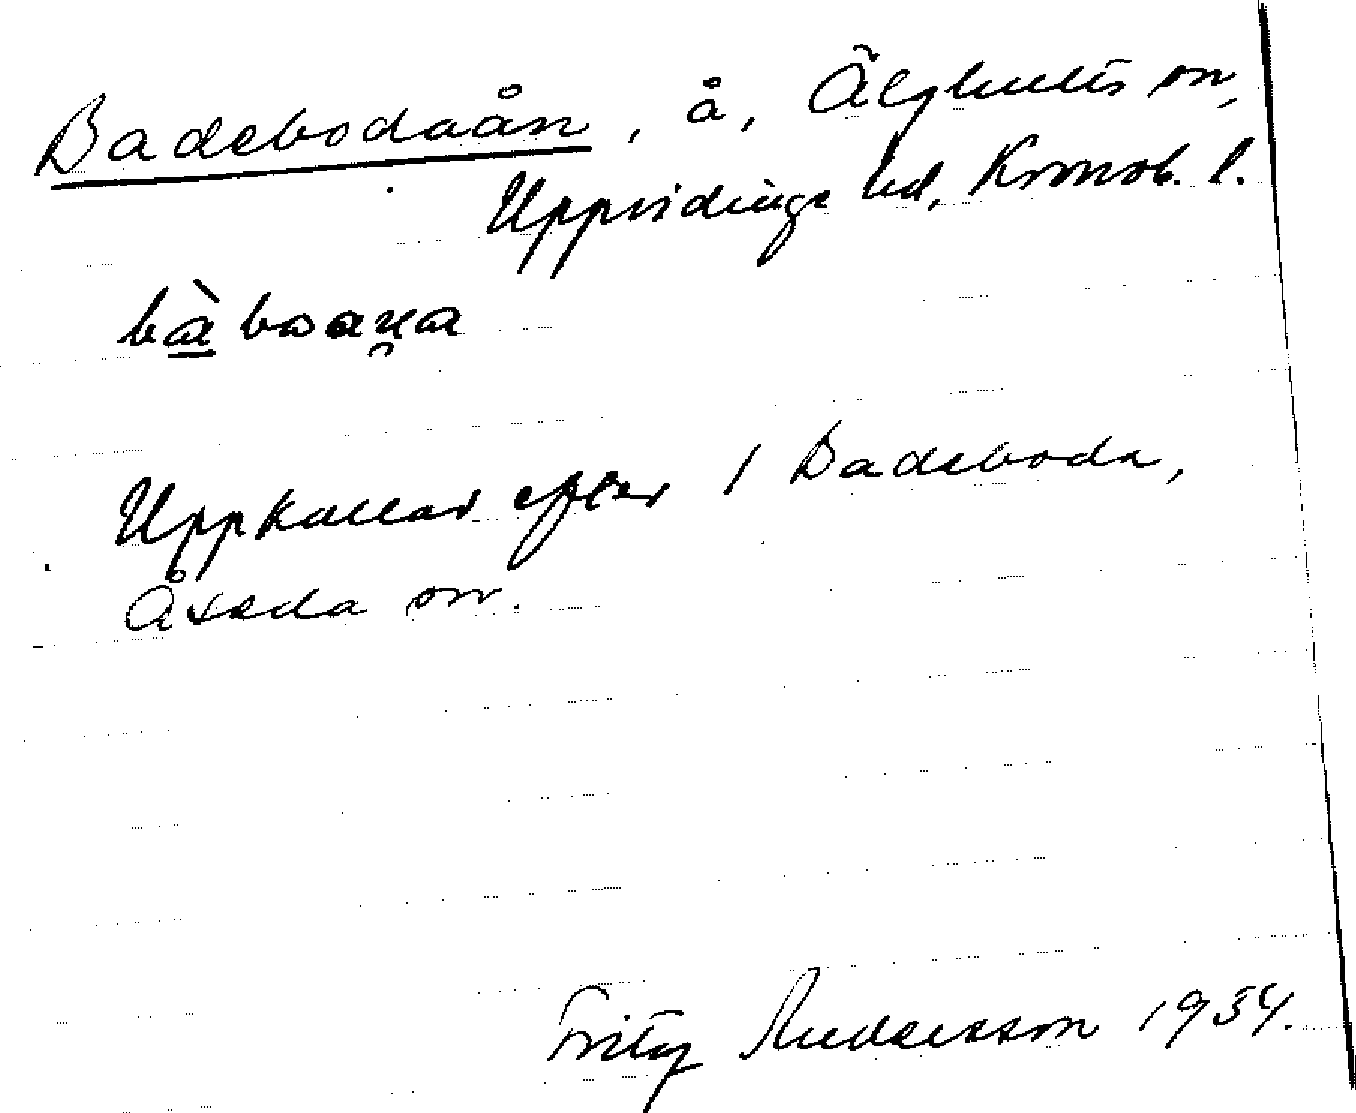 Badebodaån, å, Älghults sn,
Uppvidinge hd, Kronob. l.
bàboaṇa
Uppkallad efter 1 Badeboda,
Åseda sn.
Fritz Andersson 1934.